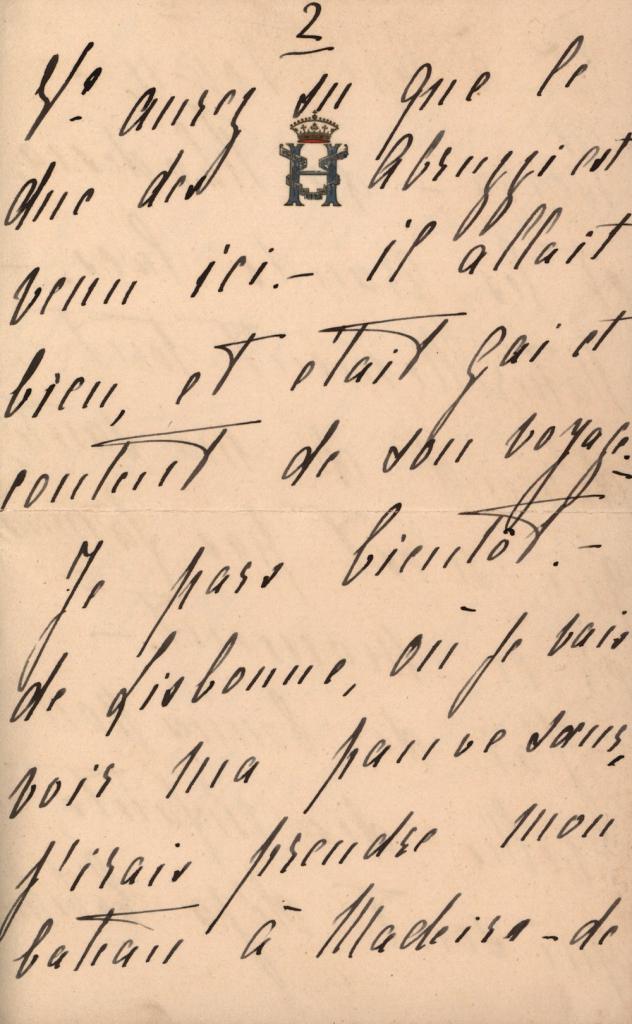 2
Vs aurez su que le
duc des Abruzzi est
venu ici. - il allait
bien, et était gai et
content de son voyage.
Je pars bientôt. -
de Lisbonne, où je vais
voir ma pauvre sœur,
j'irais prendre mon
bateau à Madeira - de